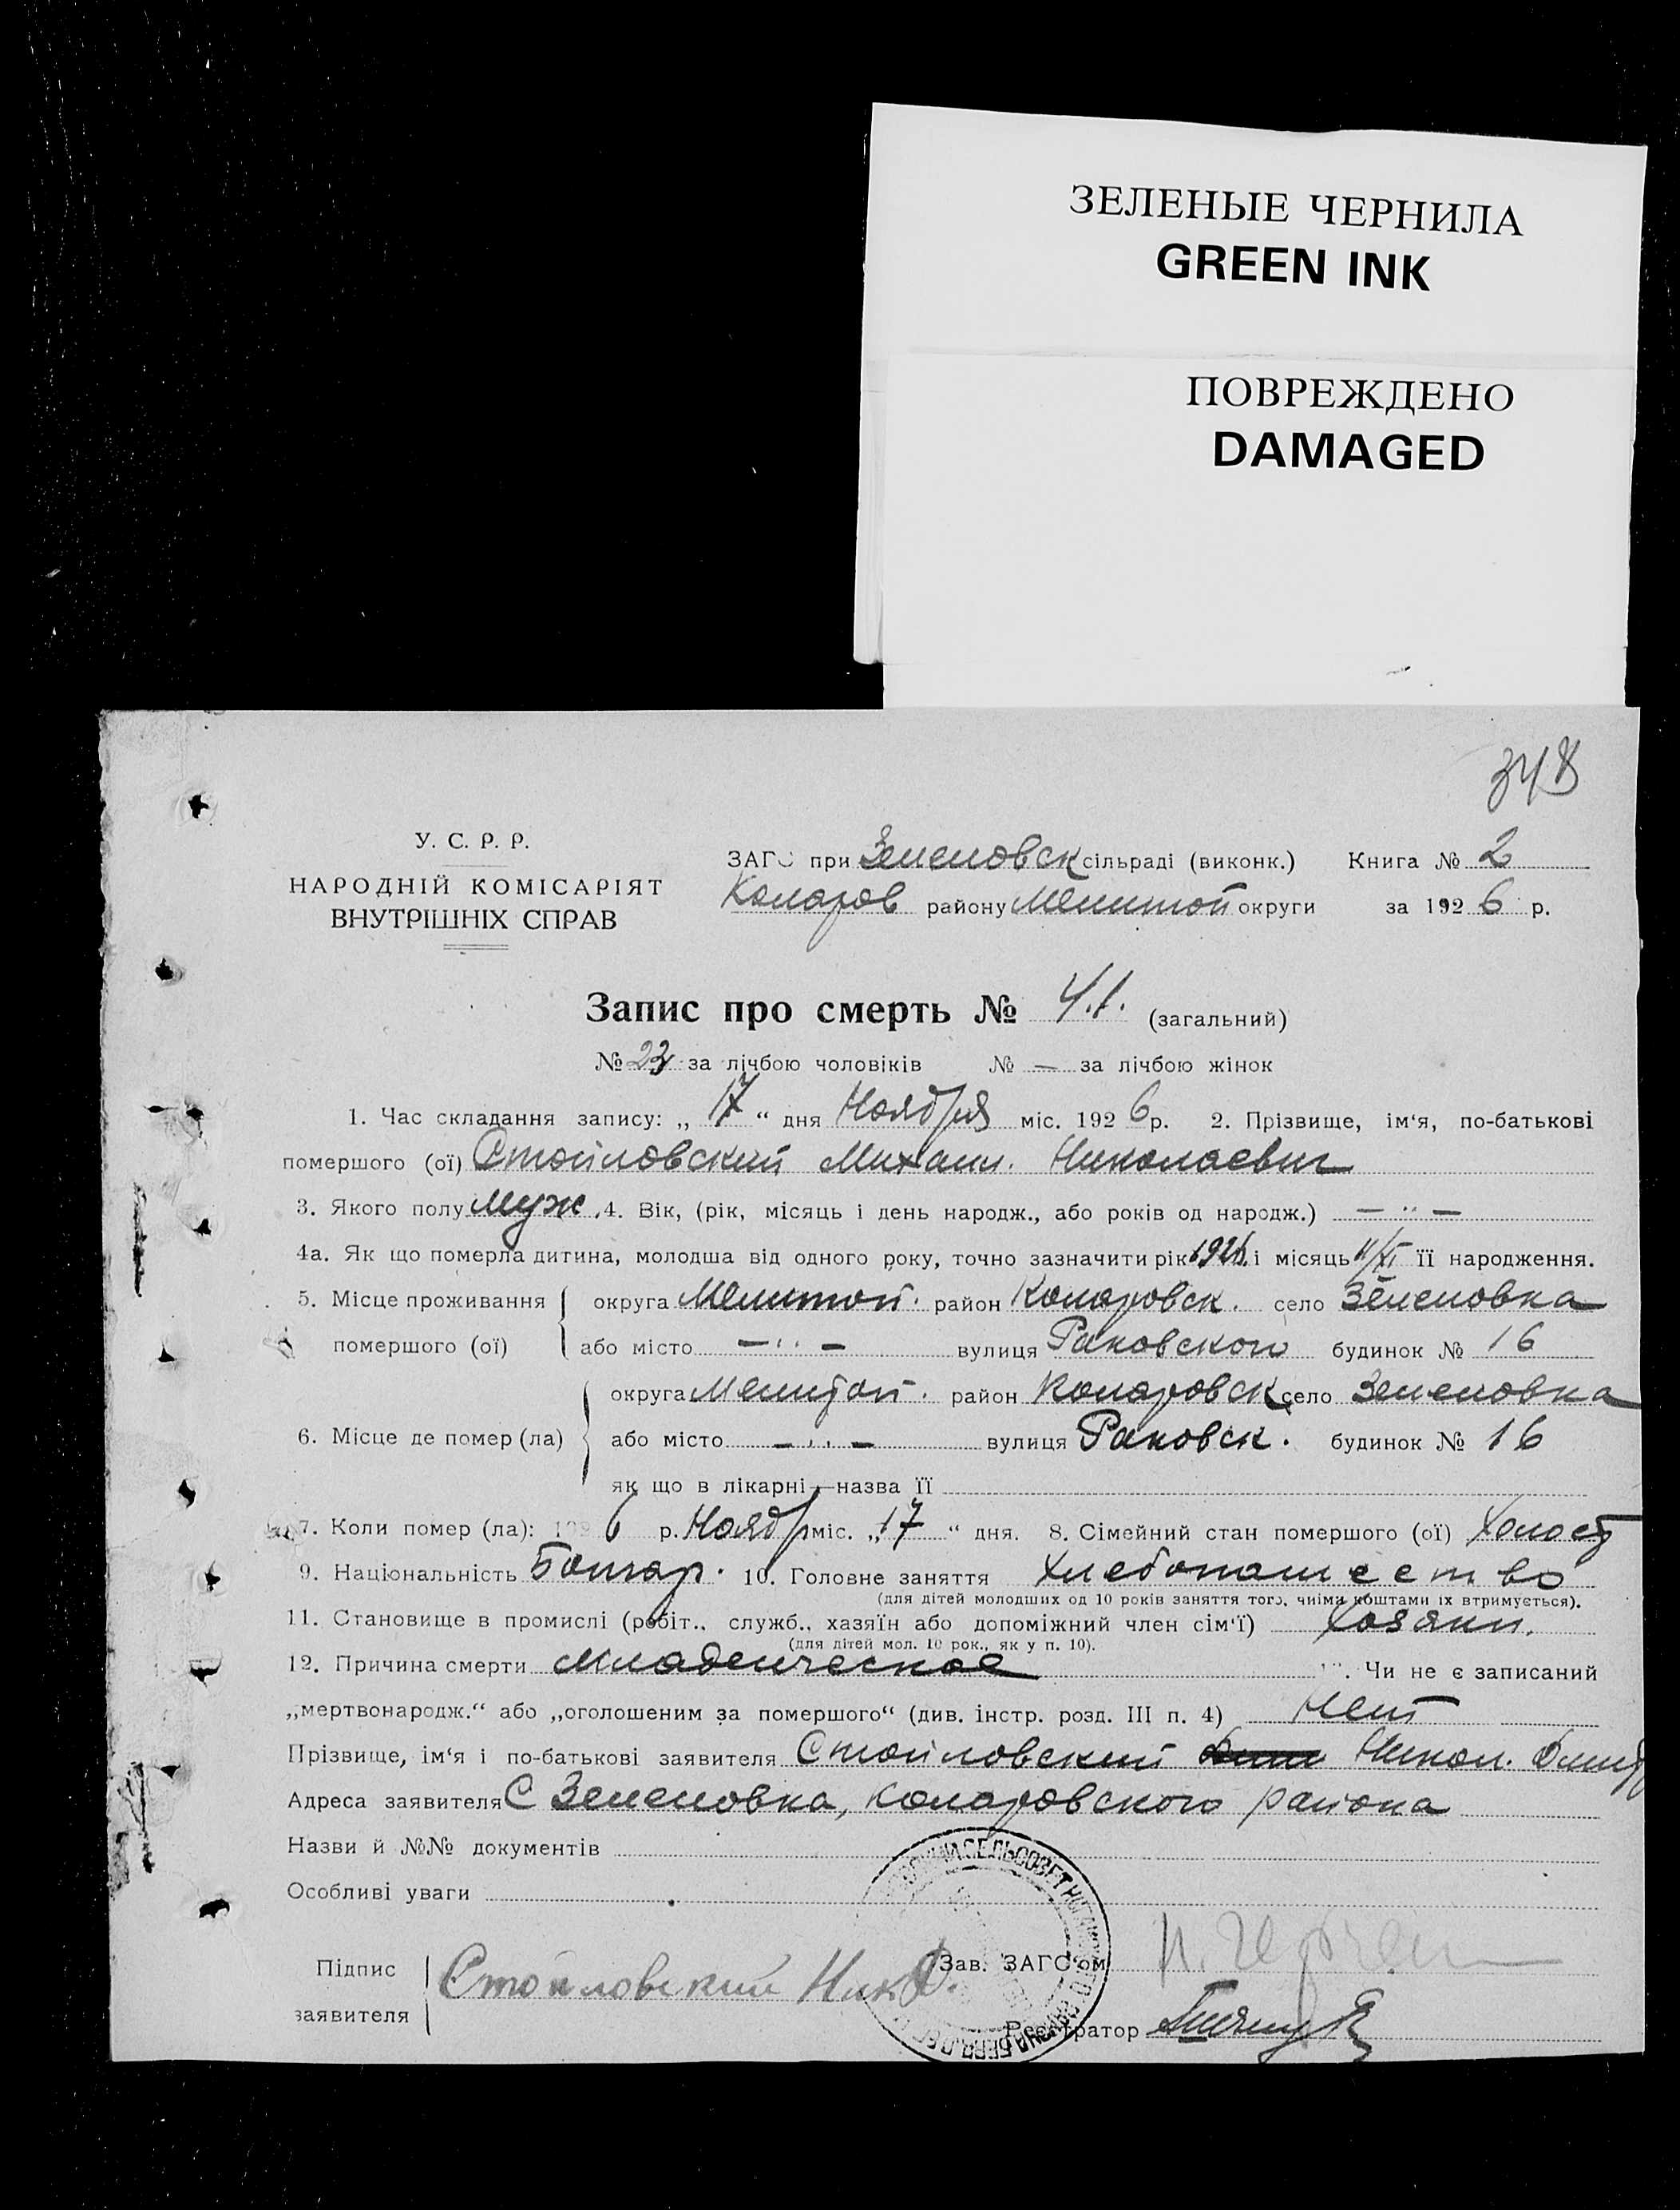 ЗЕЛЕНЫЕ ЧЕРНИЛА
GREEN INK
ПОВРЕЖДЕНО
DAMAGED
348
У. С. Р. Р.
НАРОДНІЙ КОМІСАРІЯТ
ВНУТРІШНІХ СПРАВ
ЗАГС при Зеленовск сільраді (виконк.) Книга № 2
Коларов району Мелитоп округи за 1926 р.
Запис про смерть № 41. (загальний)
№ 23 за лічбою чоловіків № — за лічбою жінок
1. Час складання запису: „17“ дня Ноября міс. 1926 р. 2. Прізвище, ім‘я, по-батькові
помершого (ої) Стойловский Михаил. Николаевич
3. Якого полу Муж. 4. Вік, (рік, місяць і день народж., або років од народж.) — „ —
4а. Як що померла дитина, молодша від одного року, точно зазначити рік 1926. і місяць 11/XI її народження.
5. Місце проживання округа Мелитоп. район Коларовск. село Зеленовка
помершого (ої) або місто — „ — вулиця Раковского будинок № 16
округа Мелитоп. район Коларовск село Зеленовка
6. Місце де помер (ла) або місто — „ — вулиця Раковск. будинок № 16
як що в лікарні — назва її
7. Коли помер (ла): 1926 р. Ноябр міс. „17“ дня. 8. Сімейний стан помершого (ої) Холост
9. Національність Болгар. 10. Головне заняття Хлебопашество
(для дітей молодших од 10 років заняття того, чиїми коштами їх втримується).
11. Становище в промислі (робіт., служб., хазяїн або допоміжний член сім‘ї) Хозяин.
(для дітей мол. 10 рок., як у п. 10).
12. Причина смерти Младенческое . Чи не є записаний
„мертвонародж.“ або „оголошеним за помершого“ (див. інстр. розд. III п. 4) Нет
Прізвище, ім‘я і по-батькові заявителя Стойловский Никол. Дмитр
Адреса заявителя С Зеленовка, Коларовского района
Назви й №№ документів
Особливі уваги
Підпис заявителя Стойловский Ник. Д.
Зав. ЗАГС‘ом
Реєстратор